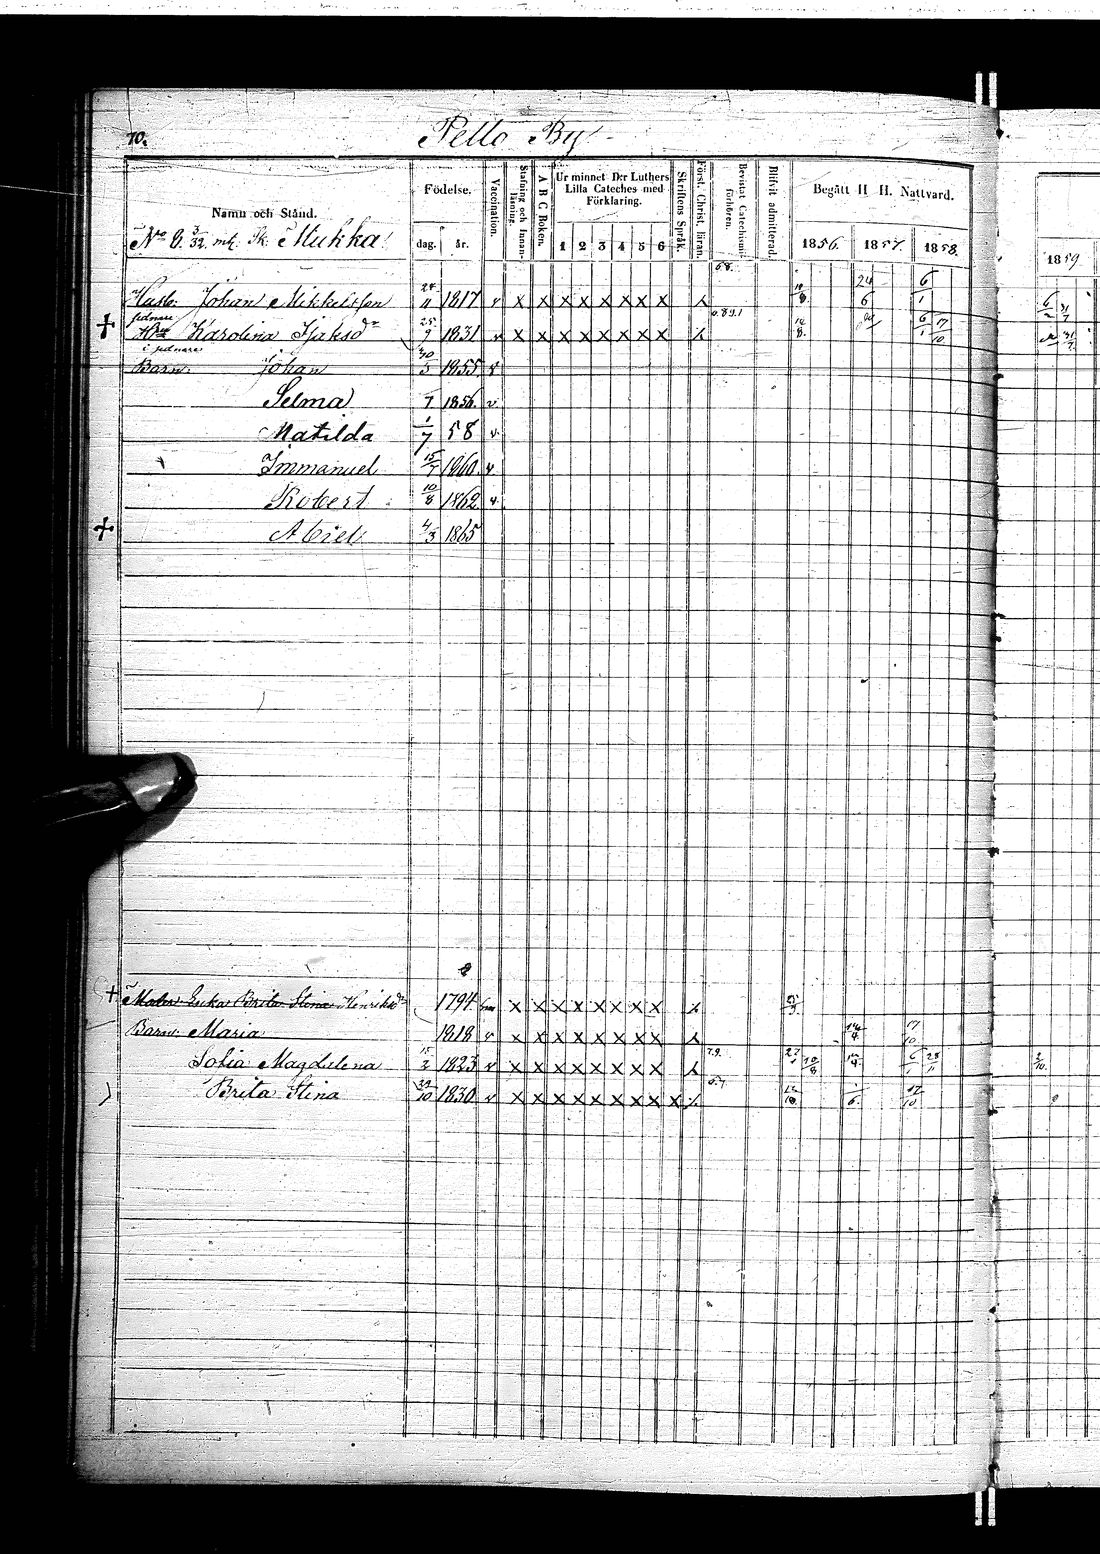 70. Pello By
Namn och Stånd. Födelse. Vaccination. Stafning och Innanläsning. A B C Boken. Ur minnet D:r Luthers Lilla Cateches med Förklaring. Skriftens Språk. Först. Christ. läran. Bevistat Catechismiförhören. Blifvit admitterad. Begått H H. Nattvard.
No 6. 3/32 mt. Sk: Mukka dag. år. 1 2 3 4 5 6 1856. 1857. 1858. 1859.
68. 24 6
Johan Mikkelsson 24/11 1817 v x x x x x x x x x 10/8 6 1 6
Karolina Isaksdr 25/9 1831 v x x x x x x x x x 14/8 6/1 17/10 31/7
Barn: Johan 30/5 1855 v
Selma 7 1856 v
Matilda 1/7 58 v
Immanuel 15/7 1860 v
Robert 10/8 1862 v
Abiel 4/3 1865
Brita Stina Henriksdr 1794 x x x x x x x x x
Barn: Maria 1818 v x x x x x x x x x 14/4 17/10
Sofia Magdalena 15/2 1823 v x x x x x x x x x 7.9. 10/8 6/1 28/11 2/10.
Brita Stina 29/10 1830 v x x x x x x x x x x 1/6 17/10